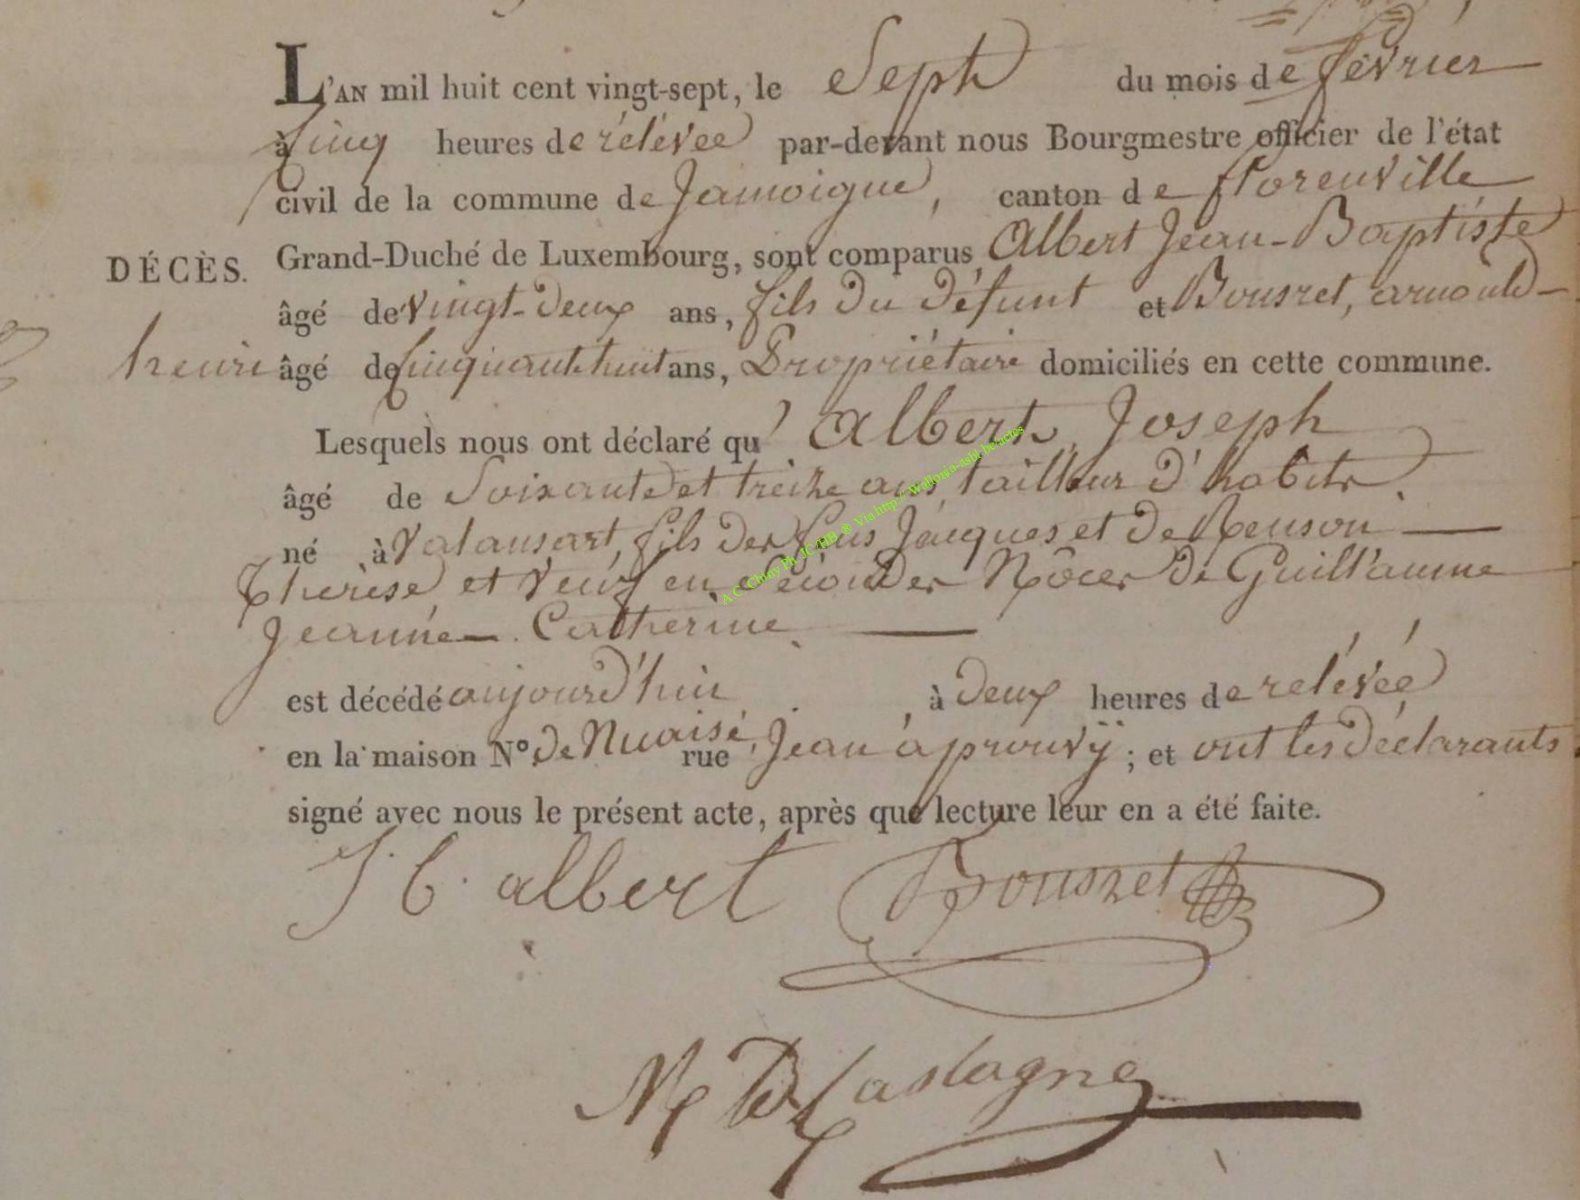 L'AN mil huit cent vingt-sept, le Sept du mois de février
à Cinq heures de rélévée par-devant nous Bourgmestre officier de l'état
civil de la commune de Jamoigne, canton de florenville
DÉCÈS. Grand-Duché de Luxembourg, sont comparus Albert Jean-Baptiste
âgé de vingt-deux ans, fils du défunt et Bousret, arnould-
henri âgé de cinquante huit ans, Propriétaire domiciliés en cette commune.
Lesquels nous ont déclaré qu' Albert, Joseph
âgé de Soixante et treize ans, tailleur d'habits,
né à Valansart, fils des feus Jacques et de Renson
Thérèse et veuf en Secondes Nôces de Guillaume
Jeanne-Catherine
est décédé aujourd'hui à deux heures de relévée
en la maison N° de rue Jean ; et ont les déclarants
signé avec nous le présent acte, après que lecture leur en a été faite.
J B. albert Bousret
Lastagne